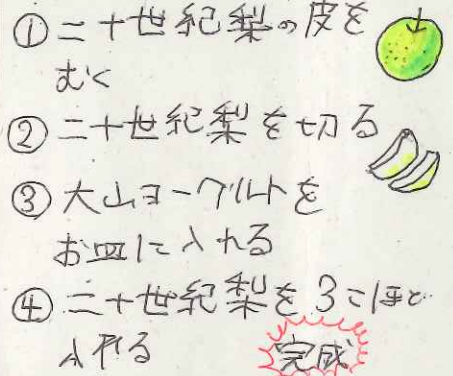 ①二十世紀梨の皮を
むく
②二十世紀梨を切る
③大山ヨーグルトを
お皿に入れる
④二十世紀梨を3こほど
入れる
完成